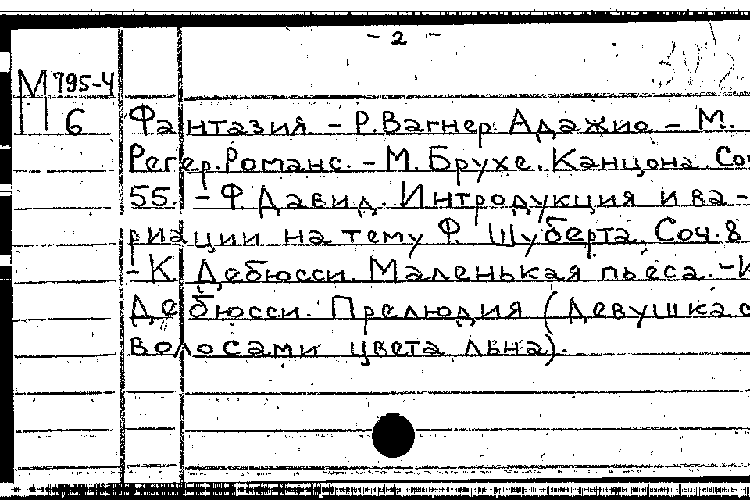 - 2 -
М 795-4
6
Фантазия - Р. Вагнер Адажио - М.
Регер. Романс. - М. Брухе. Канцона Соч
55. - Ф. Давид. Интродукция и ва-
риации на тему Ф. Шуберта Соч. 8
- К Дебюсси. Маленькая пьеса. - К
Дебюсси. Прелюдия (Девушка с
волосами цвета льна).